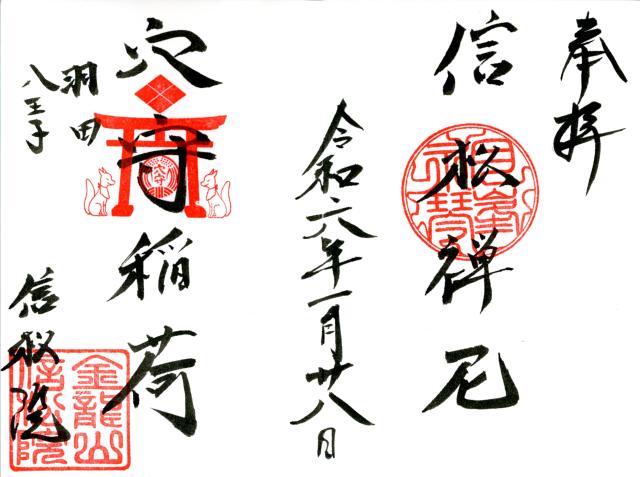 奉拝
信松禅尼
令和六年一月廿八日
穴守稲荷
羽田
八王子
信松院
穴守
金龍山
信松院